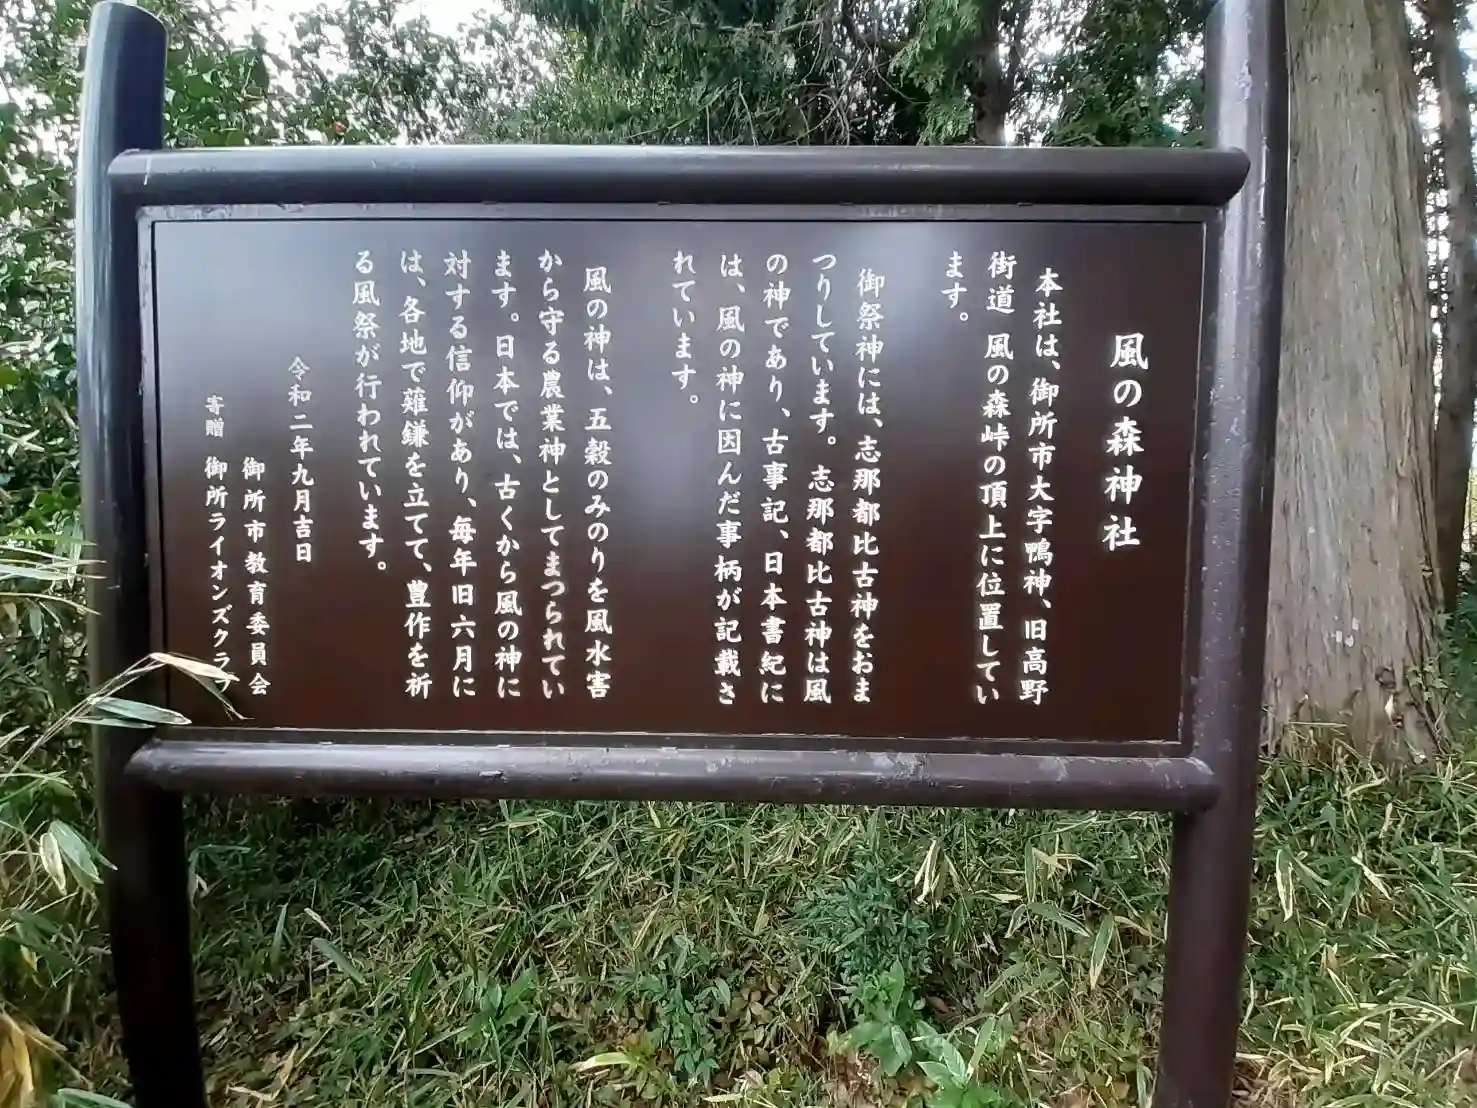 風の森神社
本社は、御所市大字鴨神、旧高野
街道 風の森峠の頂上に位置してい
ます。
御祭神には、志那都比古神をおま
つりしています。志那都比古神は風
の神であり、古事記、日本書紀に
は、風の神に因んだ事柄が記載さ
れています。
風の神は、五穀のみのりを風水害
から守る農業神としてまつられてい
ます。日本では、古くから風の神に
対する信仰があり、毎年旧六月に
は、各地で薙鎌を立てて、豊作を祈
る風祭が行われています。
令和二年九月吉日
御所市教育委員会
寄贈 御所ライオンズクラブ